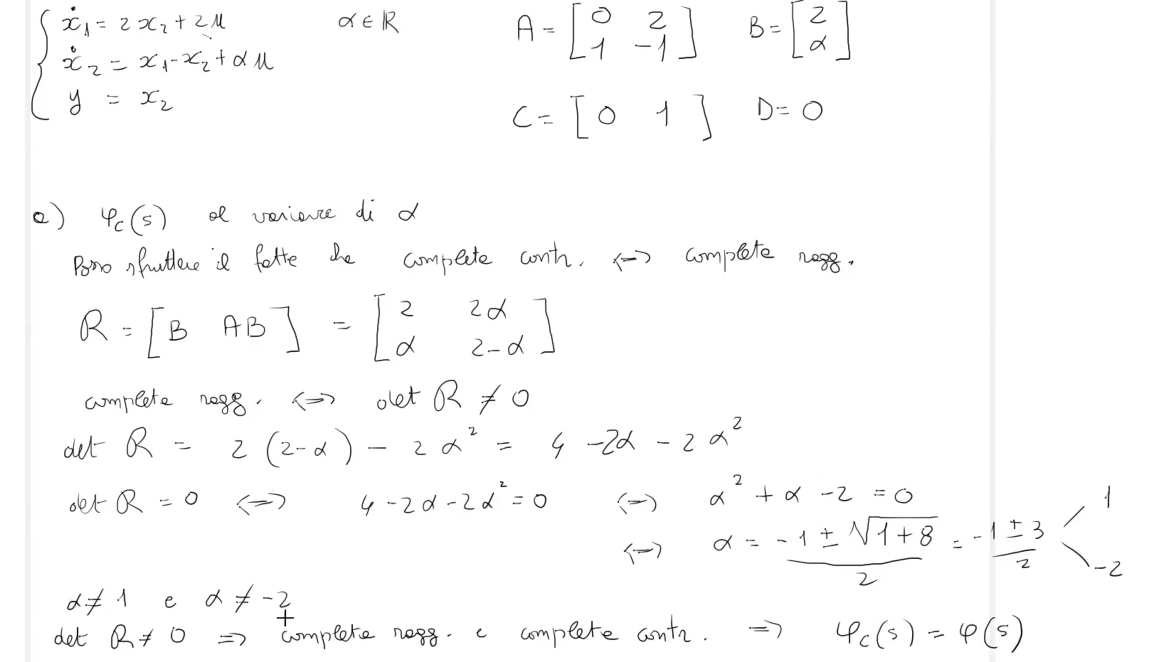 ẋ₁ = 2x₂ + 2u   α ∈ ℝ   A = [0 2; 1 -1]   B = [2; α]
ẋ₂ = x₁ - x₂ + αu
y = x₂   C = [0 1]   D = 0
a) φc(s) al variare di α
Posso sfruttare il fatto che completa contr. <=> completa ragg.
R = [B AB] = [2 2α; α 2-α]
completa ragg. <=> det R ≠ 0
det R = 2(2-α) - 2α² = 4 - 2α - 2α²
det R = 0 <=> 4 - 2α - 2α² = 0 <=> α² + α - 2 = 0
<=> α = (-1 ± √(1+8))/2 = (-1 ± 3)/2   1   -2
α ≠ 1 e α ≠ -2
det R ≠ 0 => completa ragg. e completa contr. => φc(s) = φ(s)